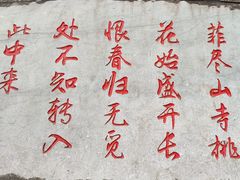 菲尽山寺桃
花始盛开长
恨春归无觅
处不知转入
此中来